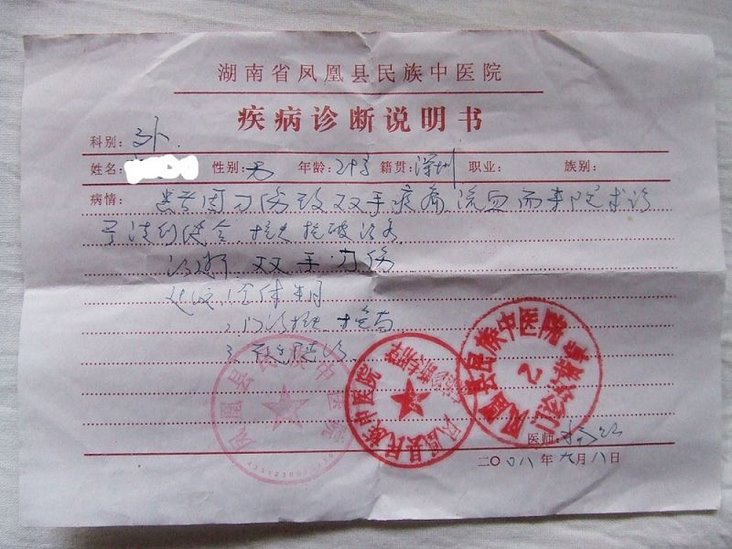 湖南省凤凰县民族中医院
疾病诊断说明书
科别: 外
姓名: 性别: 男 年龄: 29岁 籍贯: 深圳 职业: 族别:
病情: 患者因刀伤致双手疼痛流血而来院求诊
予清创缝合
诊断 双手刀伤
建议 1.全休半月
2.门诊
3.
凤凰县民族中医院
凤凰县民族中医院
凤凰县民族中医院
2
医师:
二〇〇八年九月八日